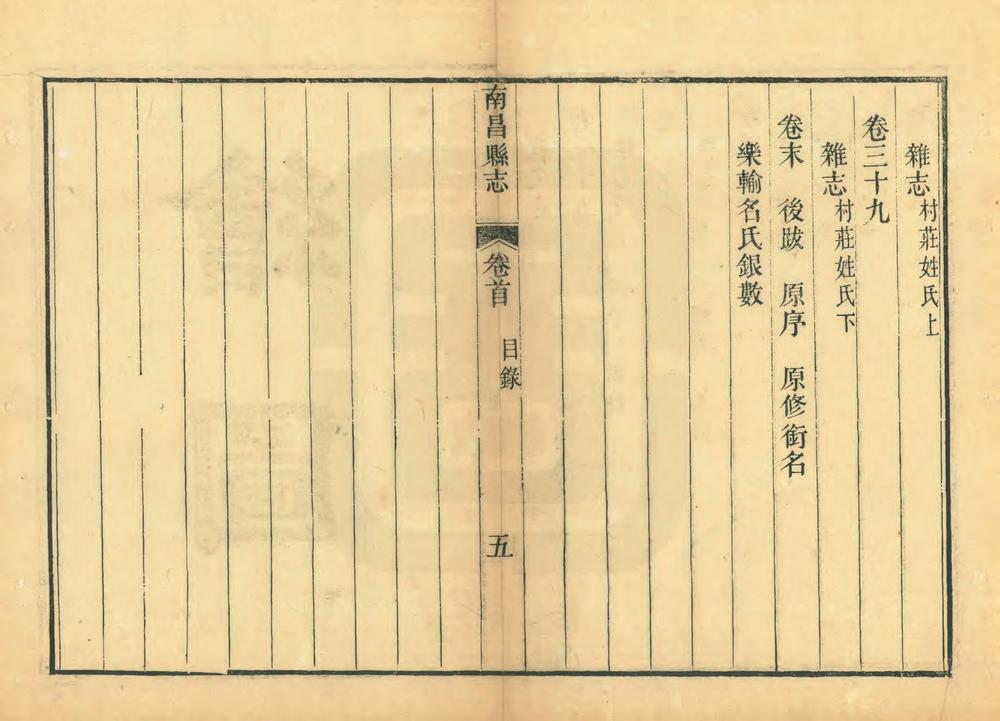 雜志村莊姓氏上
卷三十九
雜志村莊姓氏下
卷末 後跋 原序 原修銜名
樂輸名氏銀數
南昌縣志 卷首 目錄 五